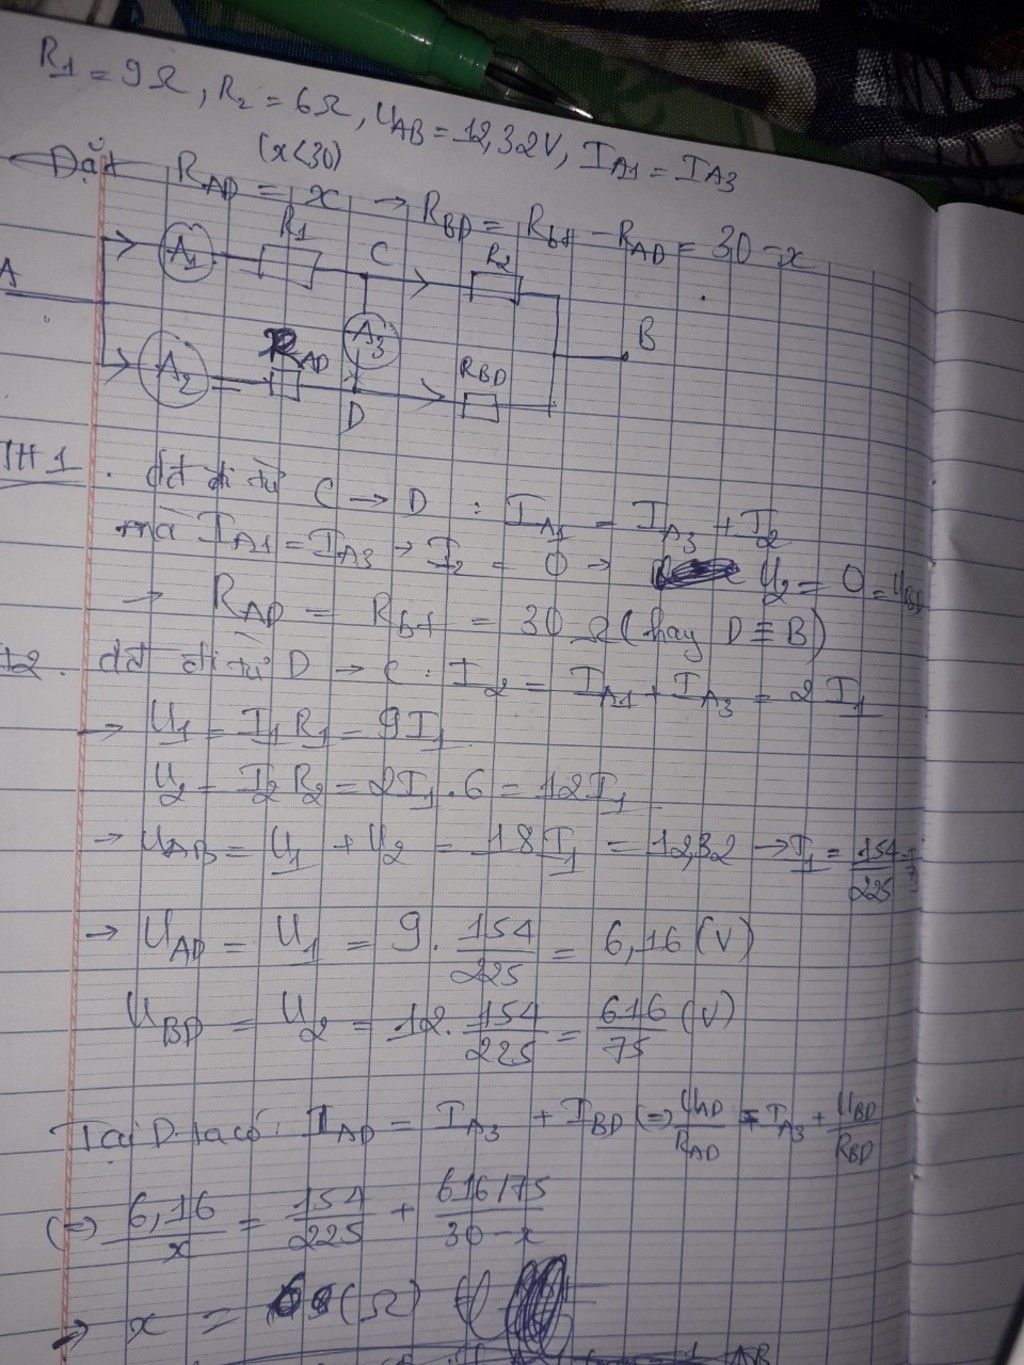 R1 = 9Ω, R2 = 6Ω, UAB = 12,32V, IA1 = IA3
(x<30)
Đặt RAD = x → RBD = Rbt - RAD = 30 - x
R1
C
R2
A1
A
A3
B
A2
RAD
RBD
D
TH1. dđ đi từ C → D : IA1 = IA3 + I2
mà IA1 = IA3 → I2 = 0 → U2 = 0 = UBD
→ RAD = Rbt = 30 Ω (hay D ≡ B)
dđ đi từ D → C : I2 = IA1 + IA3 = 2I1
→ U1 = I1R1 = 9I1
U2 = I2R2 = 2I1.6 = 12I1
→ UAB = U1 + U2 = 18I1 = 12,32 → I1 = 154/225
→ UAD = U1 = 9. 154/225 = 6,16 (V)
UBD = U2 = 12. 154/225 = 616/75 (V)
Tại D ta có: IAD = IA3 + IBD (=) UAD/RAD = IA3 + UBD/RBD
(=) 6,16/x = 154/225 + 616/75/30-x
→ x = (Ω)